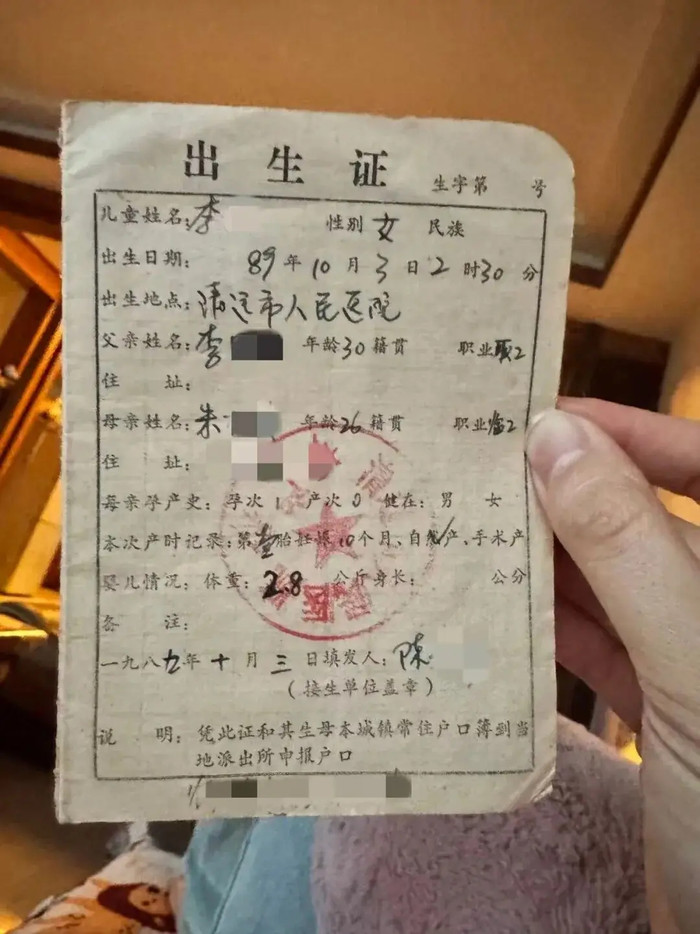 出生证
生字第 号
儿童姓名:李 性别 女 民族
出生日期: 89年10月3日2时30分
出生地点:清远市人民医院
父亲姓名:李 年龄30籍贯 职业
住 址:
母亲姓名:朱 年龄26籍贯 职业临工
住 址:
母亲孕产史:孕次1 产次0 健在:男 女
本次产时记录:第壹胎妊娠10个月、自然产、手术产
婴儿情况:体重:2.8 公斤身长: 公分
备 注:
一九八九年十月三日填发人:陈
(接生单位盖章)
说 明:凭此证和其生母本城镇常住户口簿到当
地派出所申报户口